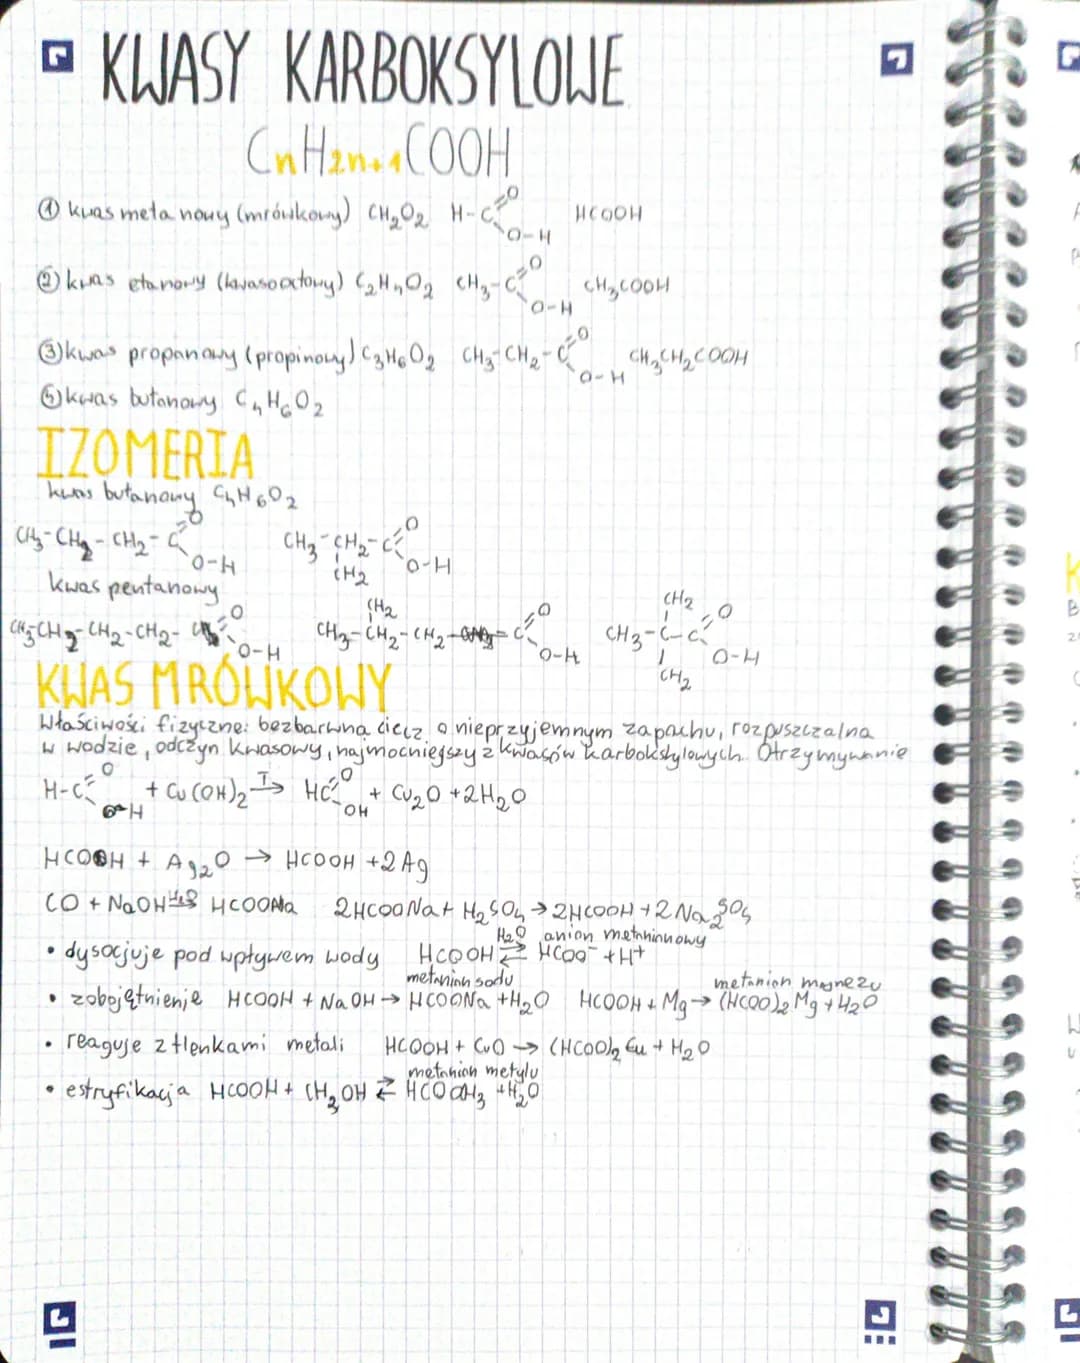 KWASY KARBOKSYLOWE
CnH2n+1COOH
① kwas metanowy (mrówkowy) CH₂O₂ H-C=O O-H HCOOH
② kwas etanowy (kwasooctowy) C₂H₄O₂ CH₃-C=O O-H CH₃COOH
③ kwas propanowy (propinowy) C₃H₆O₂ CH₃-CH₂-C=O O-H CH₃CH₂COOH
kwas butanowy C₄H₆O₂
IZOMERIA
kwas butanowy C₄H₆O₂
CH₃-CH₂-CH₂-C=O O-H CH₃-CH₂-C=O O-H CH₂
kwas pentanowy
CH₃-CH₂-CH₂-CH₂- =O O-H CH₂ CH₃-CH₂-CH₂-C=O O-H CH₂ CH₃-C-C=O O-H CH₂
KWAS MRÓWKOWY
Właściwości fizyczne: bezbarwna ciecz o nieprzyjemnym zapachu, rozpuszczalna
w wodzie, odczyn kwasowy, najmocniejszy z kwasów karbokslylowych. Otrzymywanie
H-C=O O-H + Cu(OH)₂ T→ HC=O OH + Cu₂O + 2H₂O
HCOOH + Ag₂O → HCOOH + 2Ag
CO + NaOH HCOONa 2HCOONa + H₂SO₄ → 2HCOOH + 2Na₂SO₄
• dysocjuje pod wpływem wody HCOOH H₂O⇄ HCOO⁻ + H⁺ anion metaninowy
• zobojętnienie HCOOH + NaOH → HCOONa + H₂O metanian sodu HCOOH + Mg → (HCOO)₂Mg + H₂O metanian magnezu
• reaguje z tlenkami metali HCOOH + CuO → (HCOO)₂Cu + H₂O
• estryfikacja HCOOH + CH₃OH ⇄ HCOOCH₃ + H₂O metanian metylu